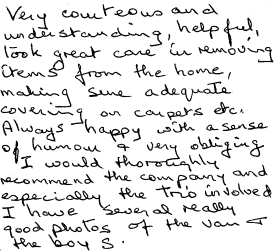 Very courteous and
understanding, helpful,
took great care in removing
items from the home,
making sure adequate
covering on carpets etc.
Always happy with a sense
of humour & very obliging
I would thoroughly
recommend the company and
especially the trio involved
I have several really
good photos of the van &
the boy S.